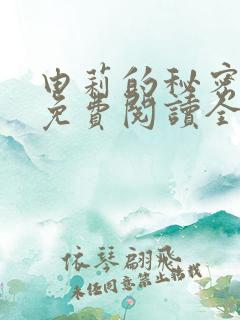 申莉的秘密
免費閱讀全
依琴翩飛
未经同意禁止转载